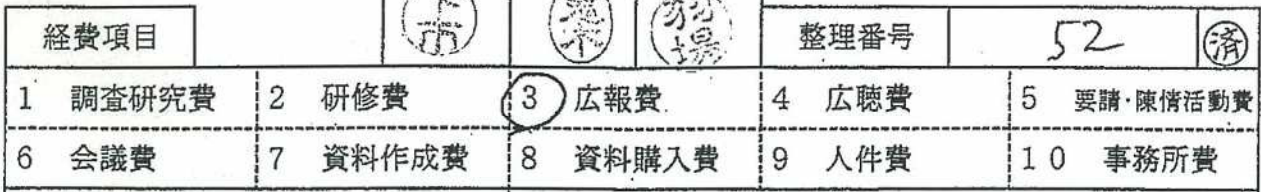 経費項目 整理番号 52 済
1 調査研究費 2 研修費 3 広報費 4 広聴費 5 要請・陳情活動費
6 会議費 7 資料作成費 8 資料購入費 9 人件費 10 事務所費